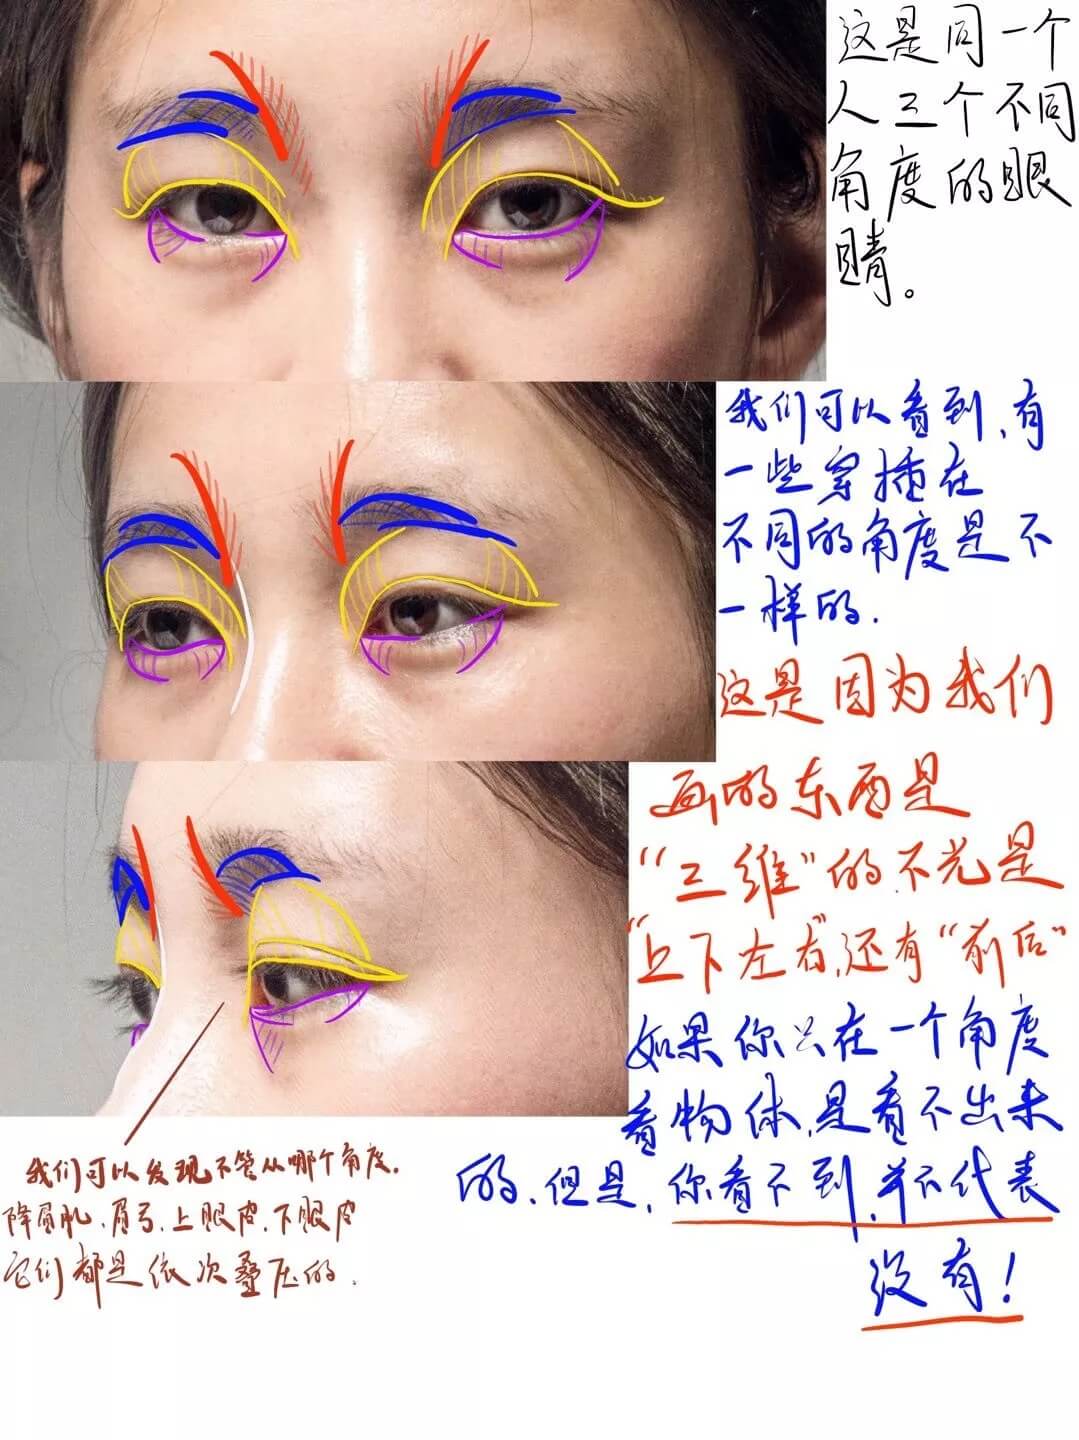 这是同一个
人三个不同
角度的眼
睛。
我们可以看到,有
一些穿插在
不同的角度是不
一样的.
这是因为我们
画的东西是
“三维”的.不光是
“上下左右”,还有“前后”
如果你只在一个角度
看物体,是看不出来
的,但是,你看不到,并不代表
没有!
我们可以发现不管从哪个角度,
降眉肌,眉弓,上眼皮,下眼皮
它们都是依次叠压的.